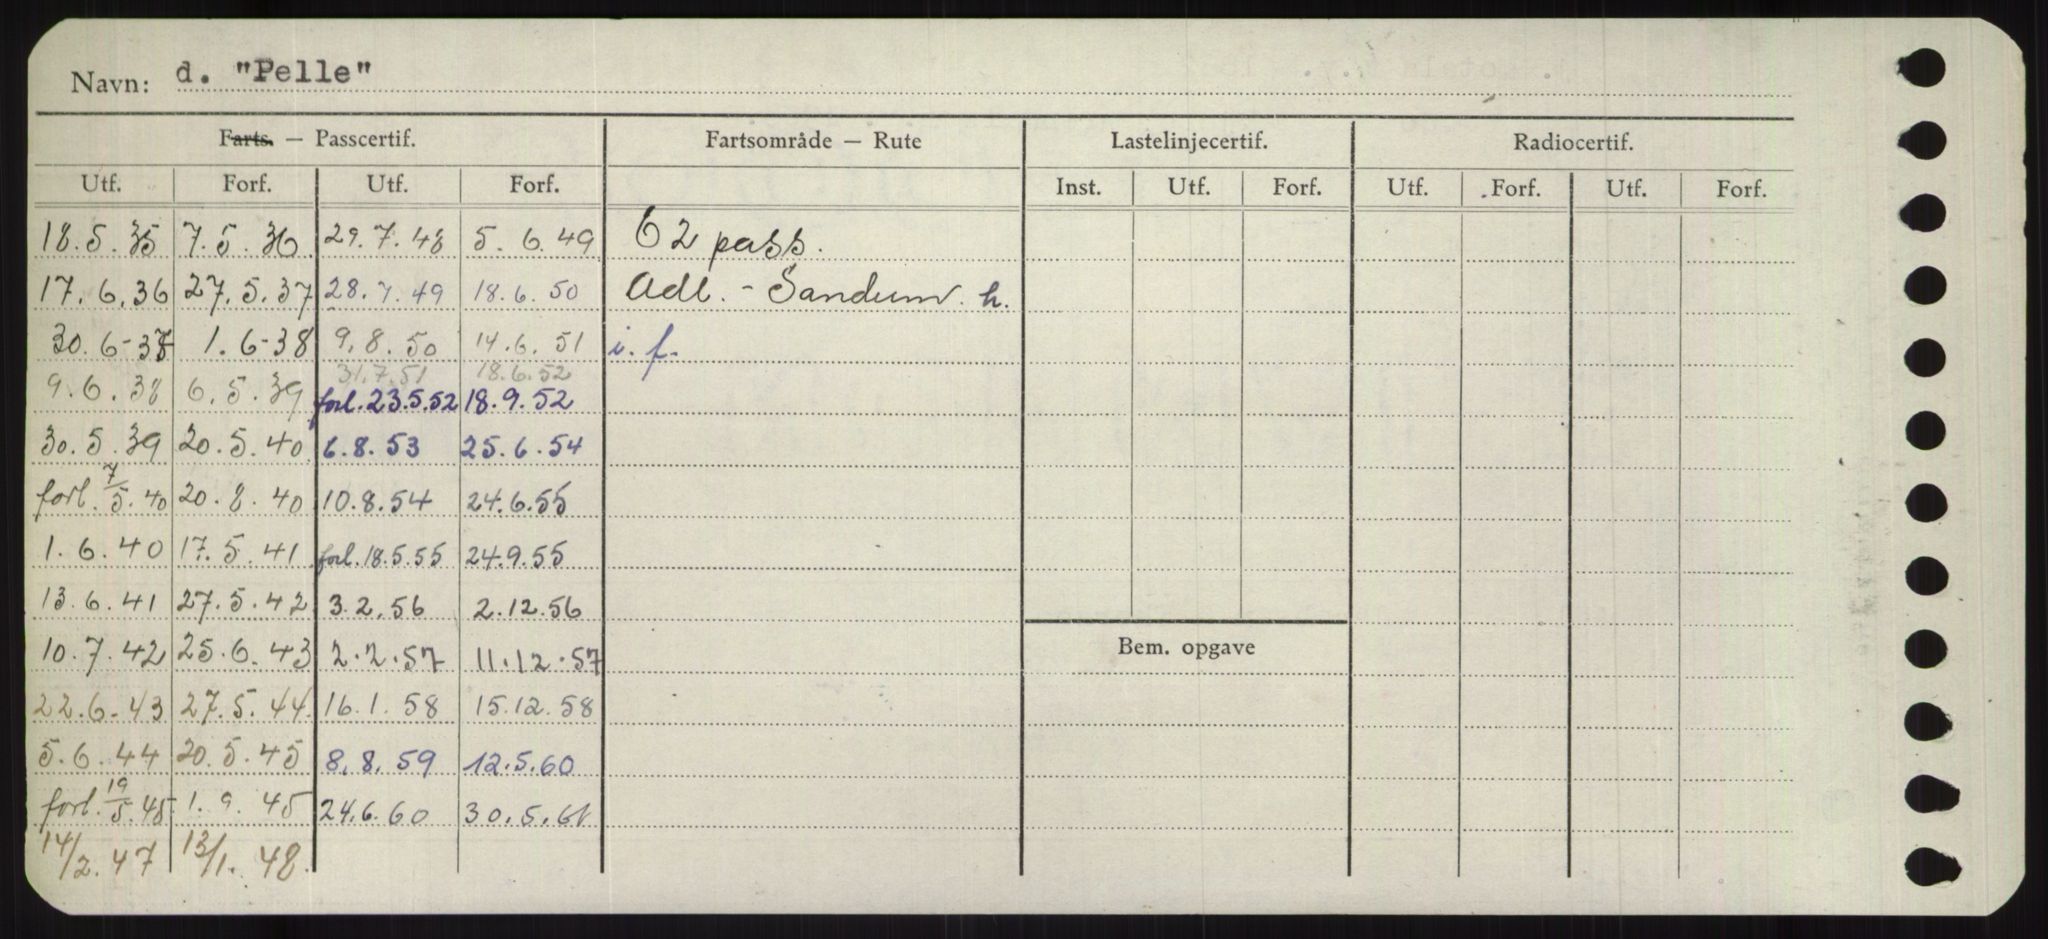 Navn: d. "Pelle"
Farts. — Passcertif. Fartsområde — Rute Lastelinjecertif. Radiocertif.
Utf. Forf. Utf. Forf. Inst. Utf. Forf. Utf. Forf. Utf. Forf.
18.5.35 7.5.36 29.7.48 5.6.49 62 pass.
17.6.36 27.5.37 28.7.49 18.6.50 Adl. - Sandum. h.
30.6-37 1.6-38 9.8.50 14.6.51 i. f.
31.7.51 18.6.52
9.6.38 6.5.39 forl. 23.5.52 18.9.52
30.5.39 20.5.40 6.8.53 25.6.54
forl. 7/5.40 20.8.40 10.8.54 24.6.55
1.6.40 17.5.41 forl. 18.5.55 24.9.55
13.6.41 27.5.42 3.2.56 2.12.56
10.7.42 25.6.43 2.2.57 11.12.57
Bem. opgave
22.6.43 27.5.44. 16.1.58 15.12.58
5.6.44 20.5.45 8.8.59 12.5.60
forl. 19/5.45. 1.9.45 24.6.60 30.5.61
14/2.47 13/1.48.